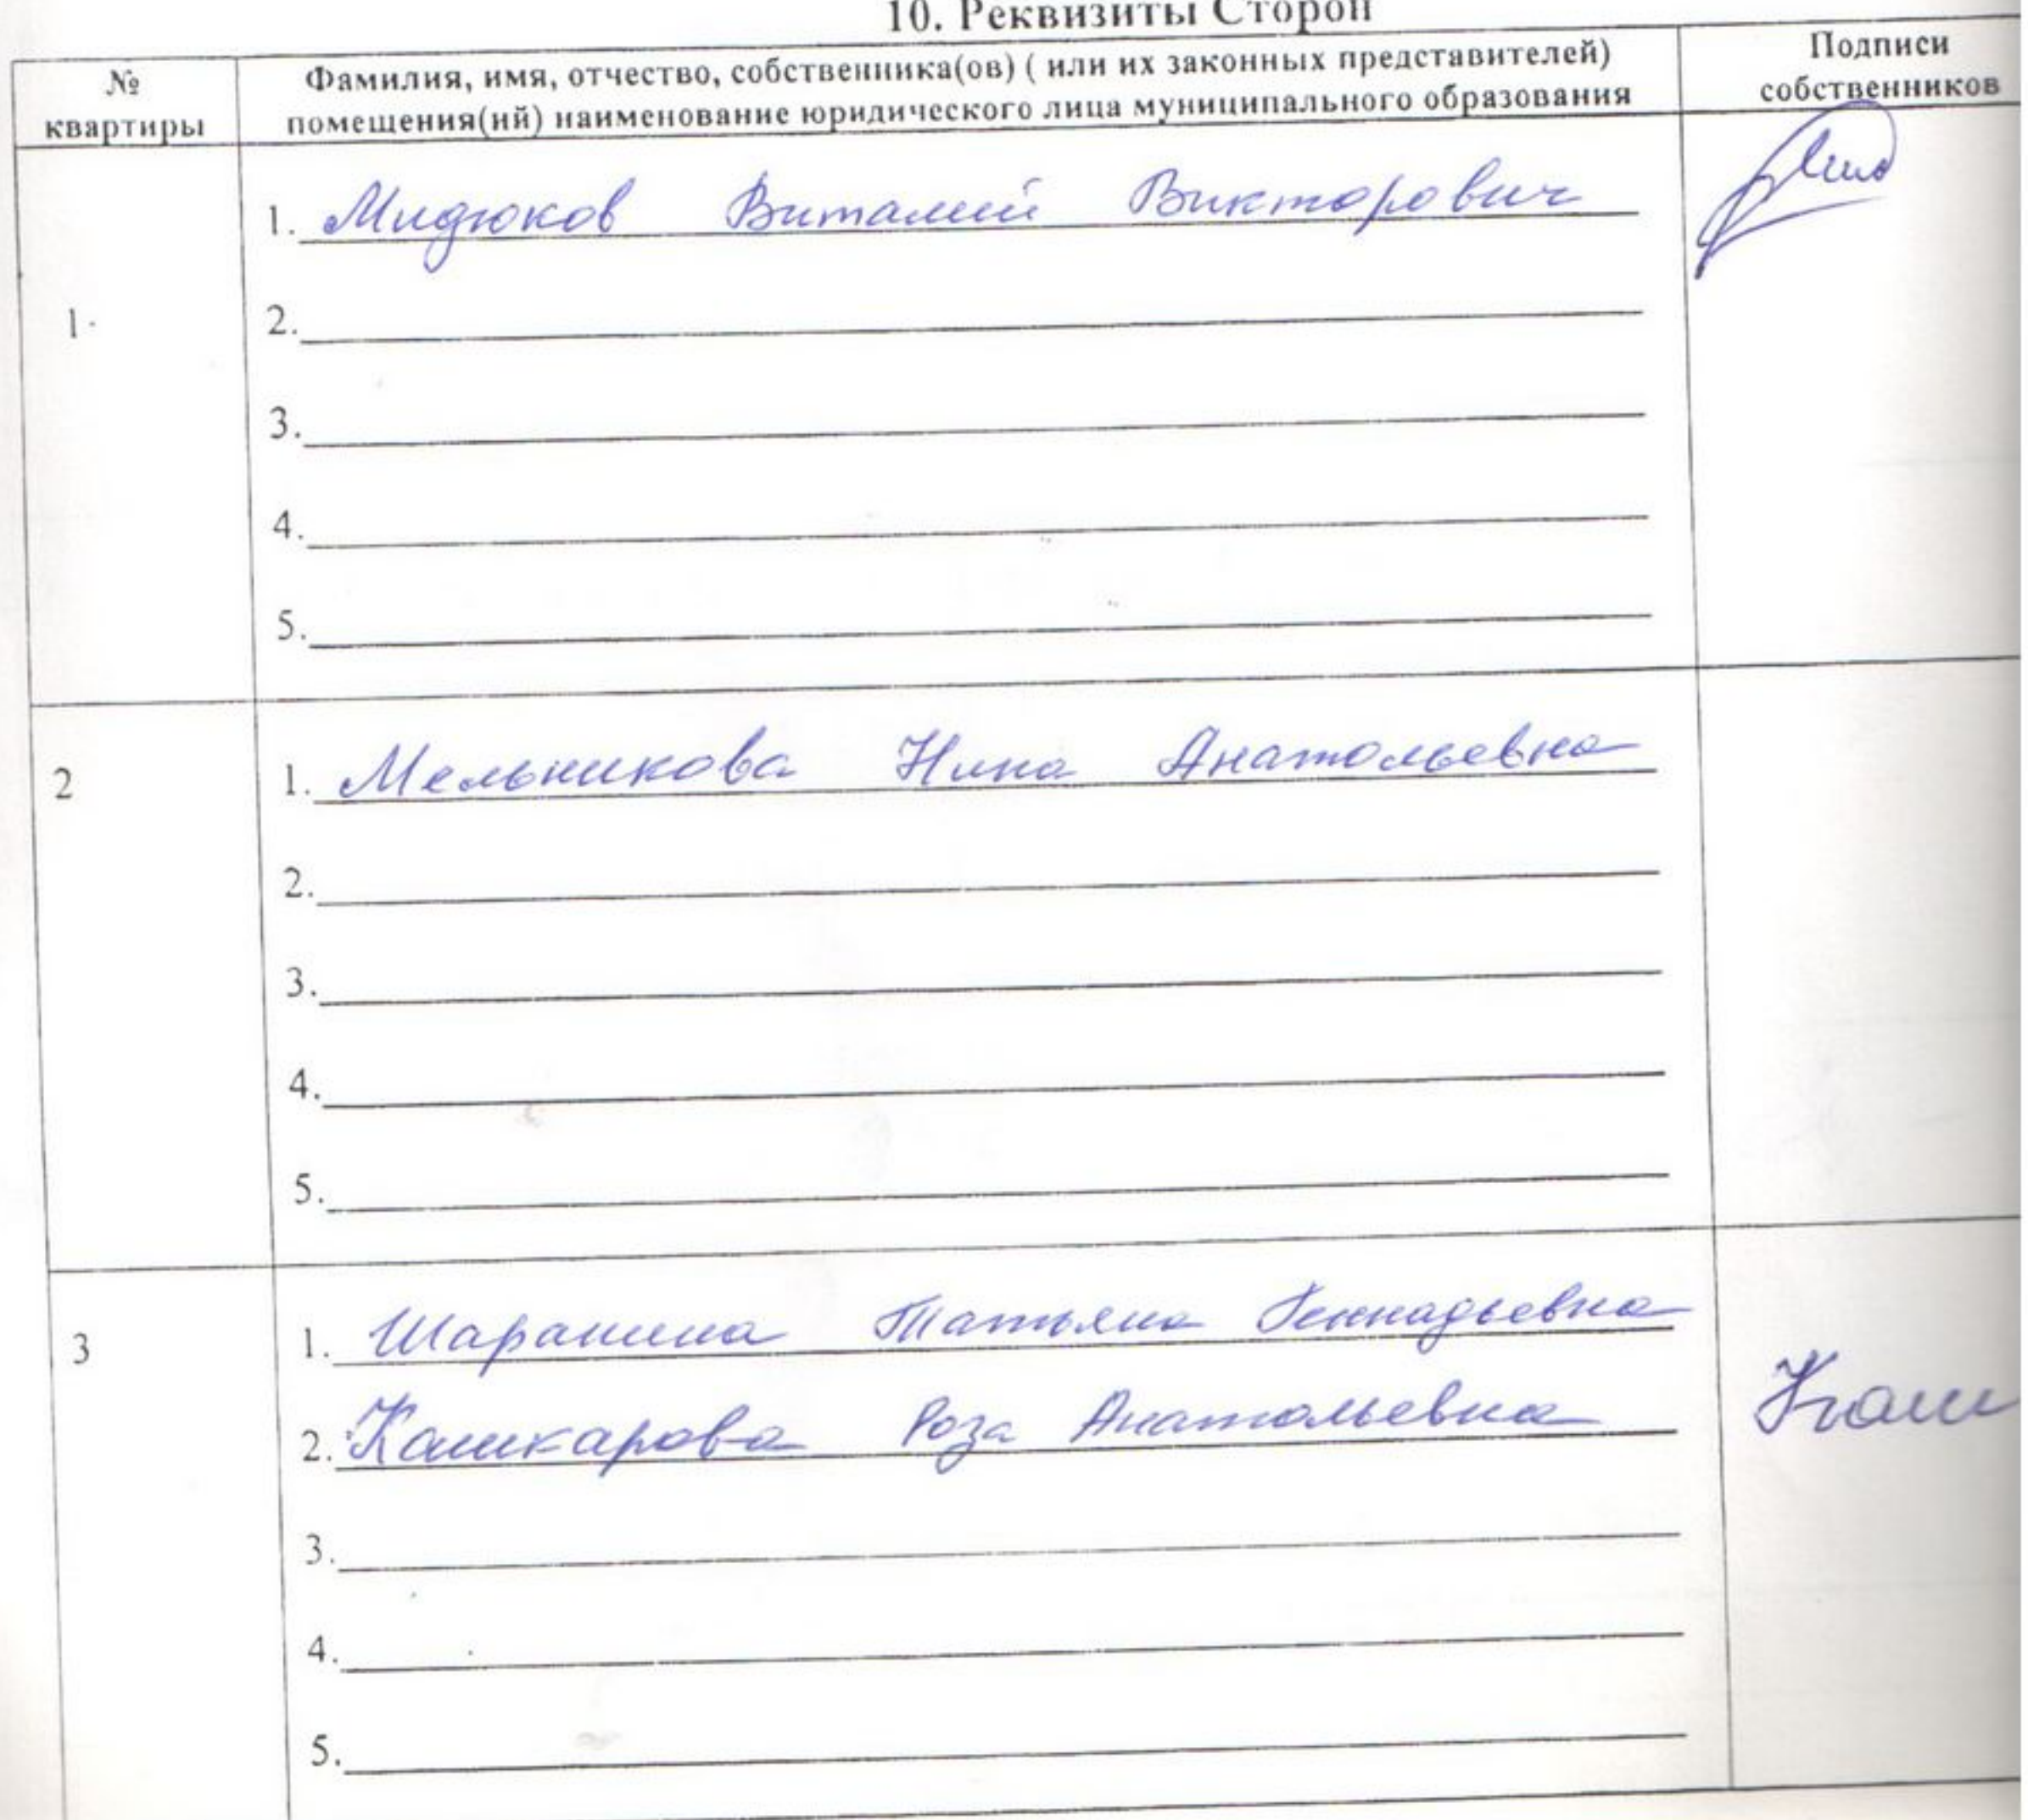 10. Реквизиты Сторон
№ квартиры
Фамилия, имя, отчество, собственника(ов) ( или их законных представителей)
помещения(ий) наименование юридического лица муниципального образования
Подписи
собственников
1.
1. Мидюков Виталий Викторович
2.
3.
4.
5.
2
1. Мельникова Нина Анатольевна
2.
3.
4.
5.
3
1. Шаранина Татьяна Геннадьевна
2. Кашкарова Роза Анатольевна
Каш
3.
4.
5.